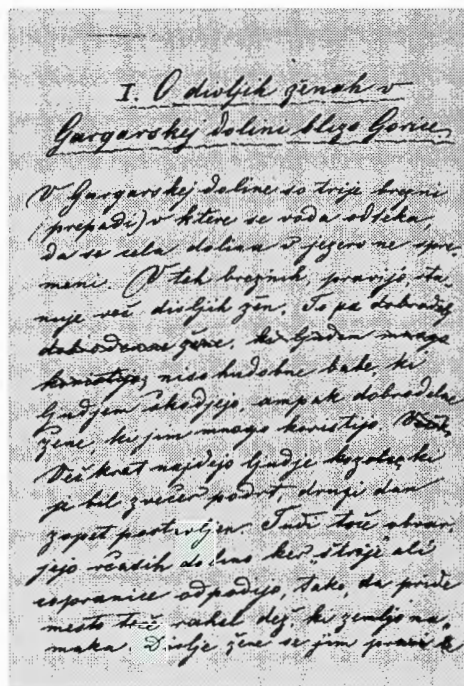 I. O divljih ženah v
Gargarskej dolini blizo Gorice.
V Gargarskej doline so trije brezni
(prepadi) v ktere se voda odteka,
da se cela dolina v jezero ne spre-
meni. V teh breznih, pravijo, sta-
nuje več divljih žen. To pa
dobrodevne žene, ki ljudem mnogo
koristijo, niso hudobne babe, ki
ljudjem škodjejo, ampak dobrodelne
žene, ki jim mnogo koristijo.
Večkrat najdejo ljudje kozolec, ki
je bil zvečer podrt, drugi dan
zopet postavljen. Tudi toče obvar-
jejo včasih dolino ker "strije" ali
copranice odpodijo, tako, da pride
mesto toče rahel dež, ki zemljo na-
maka. Divlje žene se jim